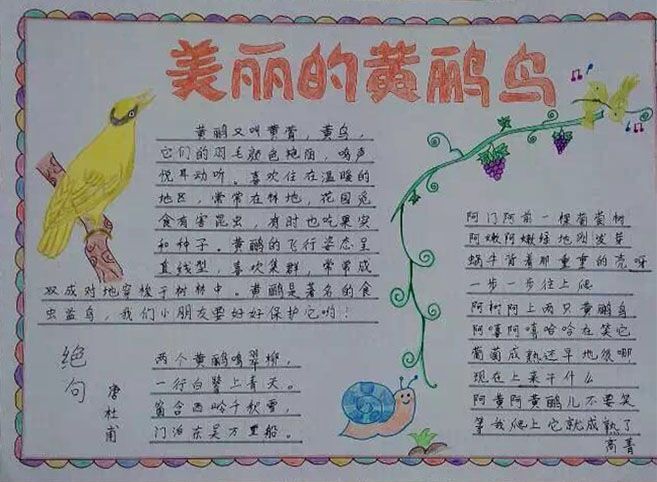 美丽的黄鹂鸟
黄鹂又叫黄莺，黄鸟，
它们的羽毛颜色艳丽，鸣声
悦耳动听。喜欢住在温暖的
地区，常常在林地，花园觅
食有害昆虫，有时也吃果实
和种子。黄鹂的飞行姿态呈
直线型，喜欢集群，常常成
双成对地穿梭于树林中。黄鹂是著名的食
虫益鸟，我们小朋友要好好保护它哟！
绝句
唐杜甫
两个黄鹂鸣翠柳，
一行白鹭上青天。
窗含西岭千秋雪，
门泊东吴万里船。
阿门阿前一棵葡萄树
阿嫩阿嫩绿地刚发芽
蜗牛背着那重重的壳呀
一步一步往上爬
阿树阿上两只黄鹂鸟
阿嘻阿嘻哈哈在笑它
葡萄成熟还早地很哪
现在上来干什么
阿黄阿黄鹂儿不要笑
等我爬上它就成熟了
高菁